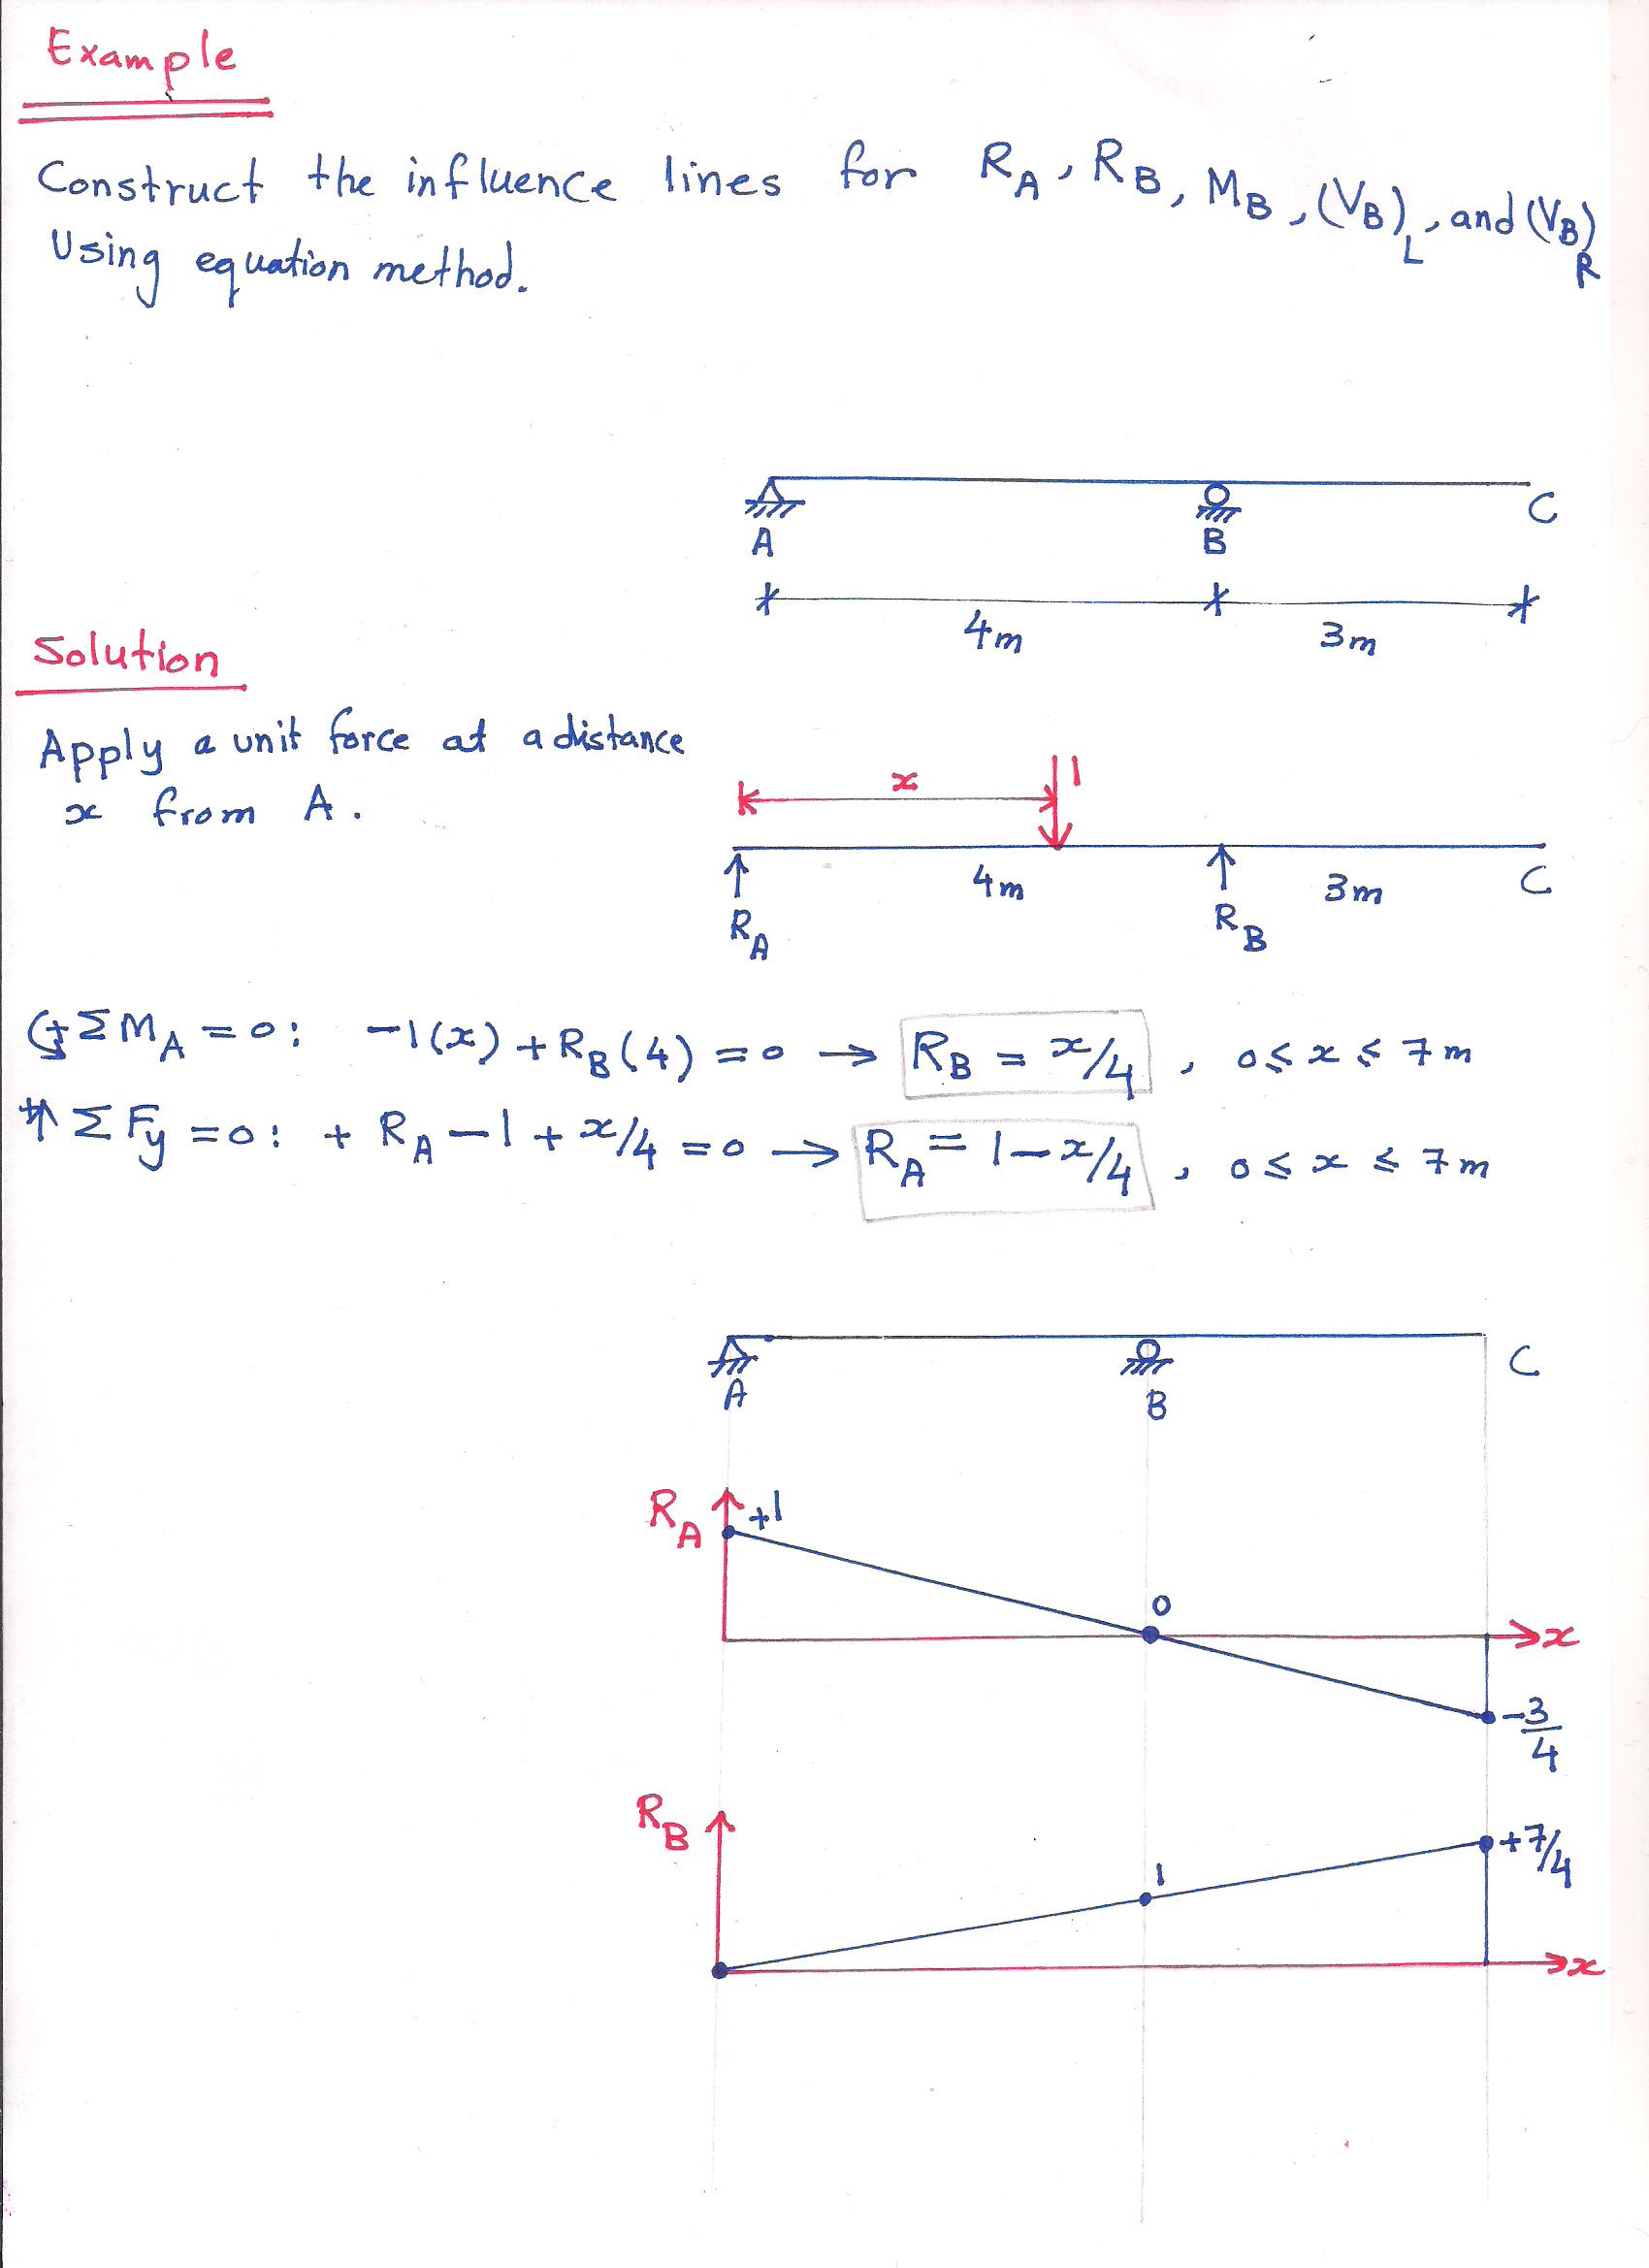 Example
Construct the influence lines for R_A, R_B, M_B, (V_B)_L, and (V_B)_R
Using equation method.
A B C
4m 3m
Solution
Apply a unit force at a distance
x from A.
x 1
4m 3m C
R_A R_B
+ΣM_A = 0: -1(x) + R_B(4) = 0 → R_B = x/4, 0 ≤ x ≤ 7m
+↑ΣFy = 0: + R_A - 1 + x/4 = 0 → R_A = 1 - x/4, 0 ≤ x ≤ 7m
A B C
R_A +1
0
x
-3/4
R_B
1
+7/4
x